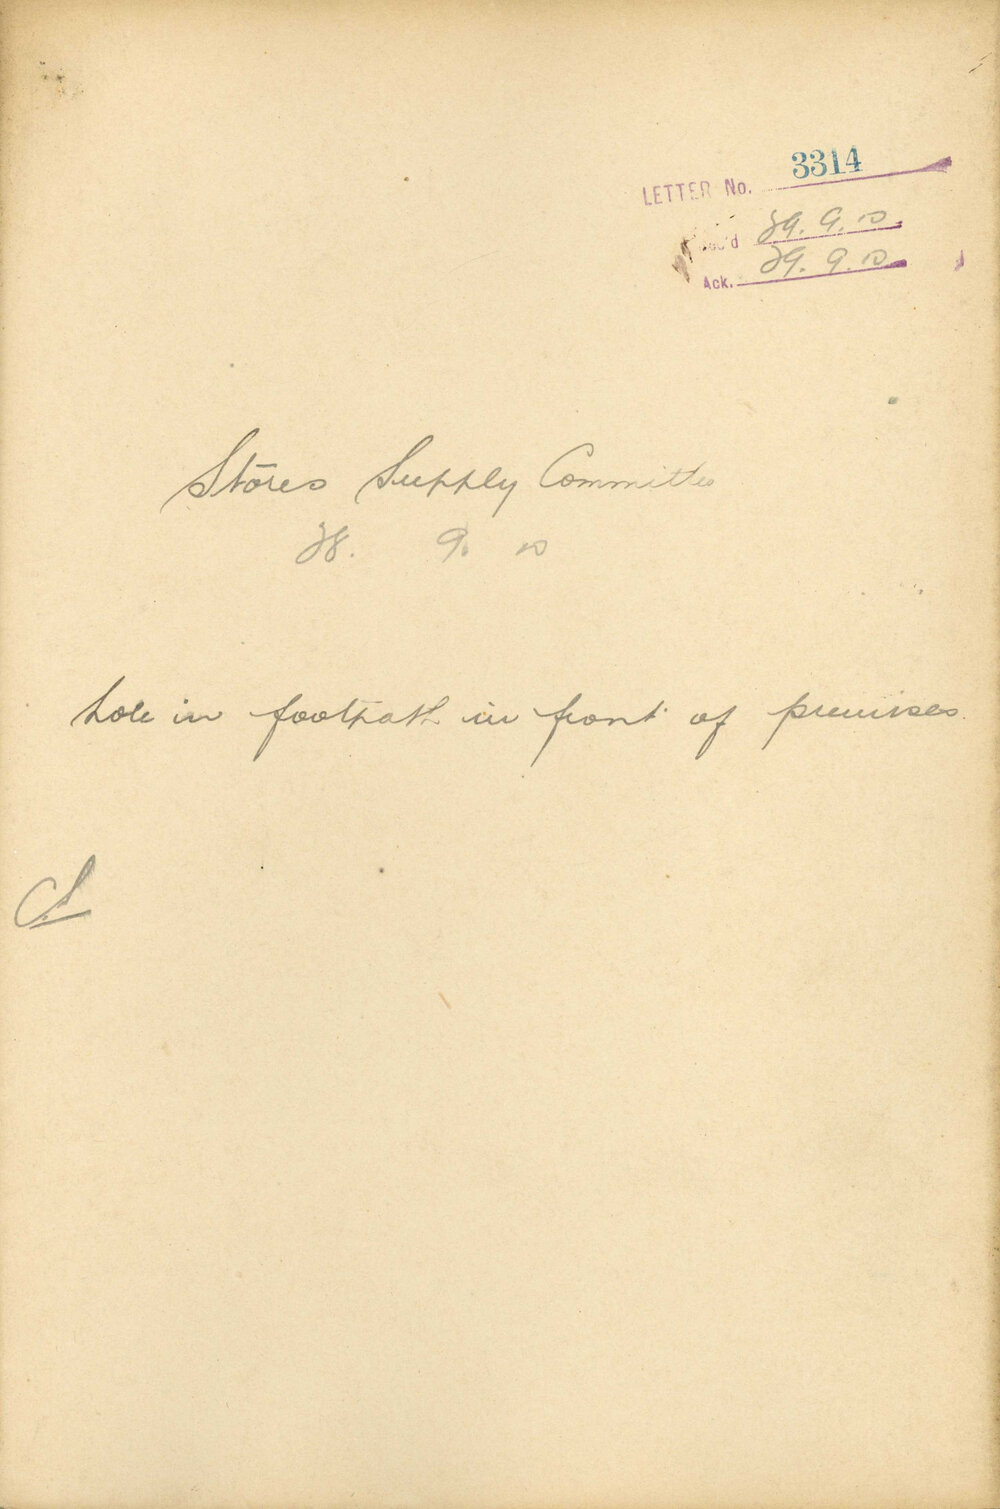 LETTER No. 3314
Rec'd 29.9.10
Ack. 29.9.10
Stores Supply Committee
28. 9. 10
hole in footpath in front of premises